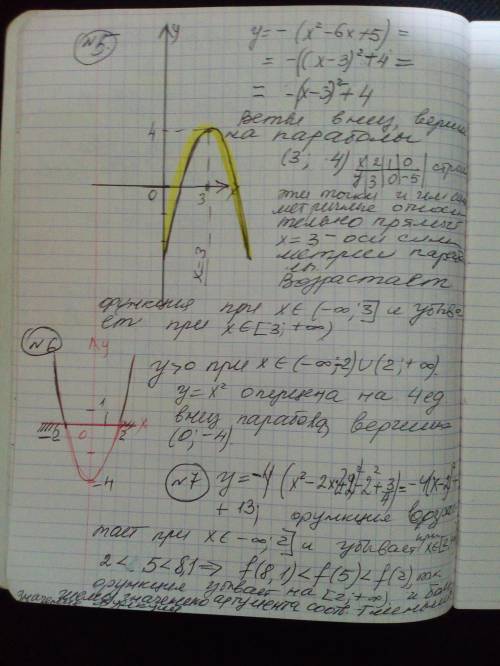 №5.
y
y = -(x²-6x+5) =
= -((x-3)²+4 =
= -(x-3)²+4
Ветви вниз, верши
на параболы
(3; -4) x 2 1 0 стро
y 3 0 -5
эти точки и им сим
метричные относи
тельно прямые
x=3 - оси сим
метрии параб
лы.
Возрастает
4
0
3
x
x=3
функция при x∈(-∞;3] и убыва
ет при x∈[3;+∞)
№6
y
y>0 при x∈(-∞;-2)∪(2;+∞).
y=x² опущена на 4 ед
вниз парабола, вершина
(0;-4)
1
-2
0
2
x
-4
№7
+13; функция возрас
тает при x∈-∞;2] и убывает при
2<5<8,1 ⇒ f(8,1)<f(5)<f(2), т.к
функция убывает на [2;+∞) и
значению аргумента соот
значение функции